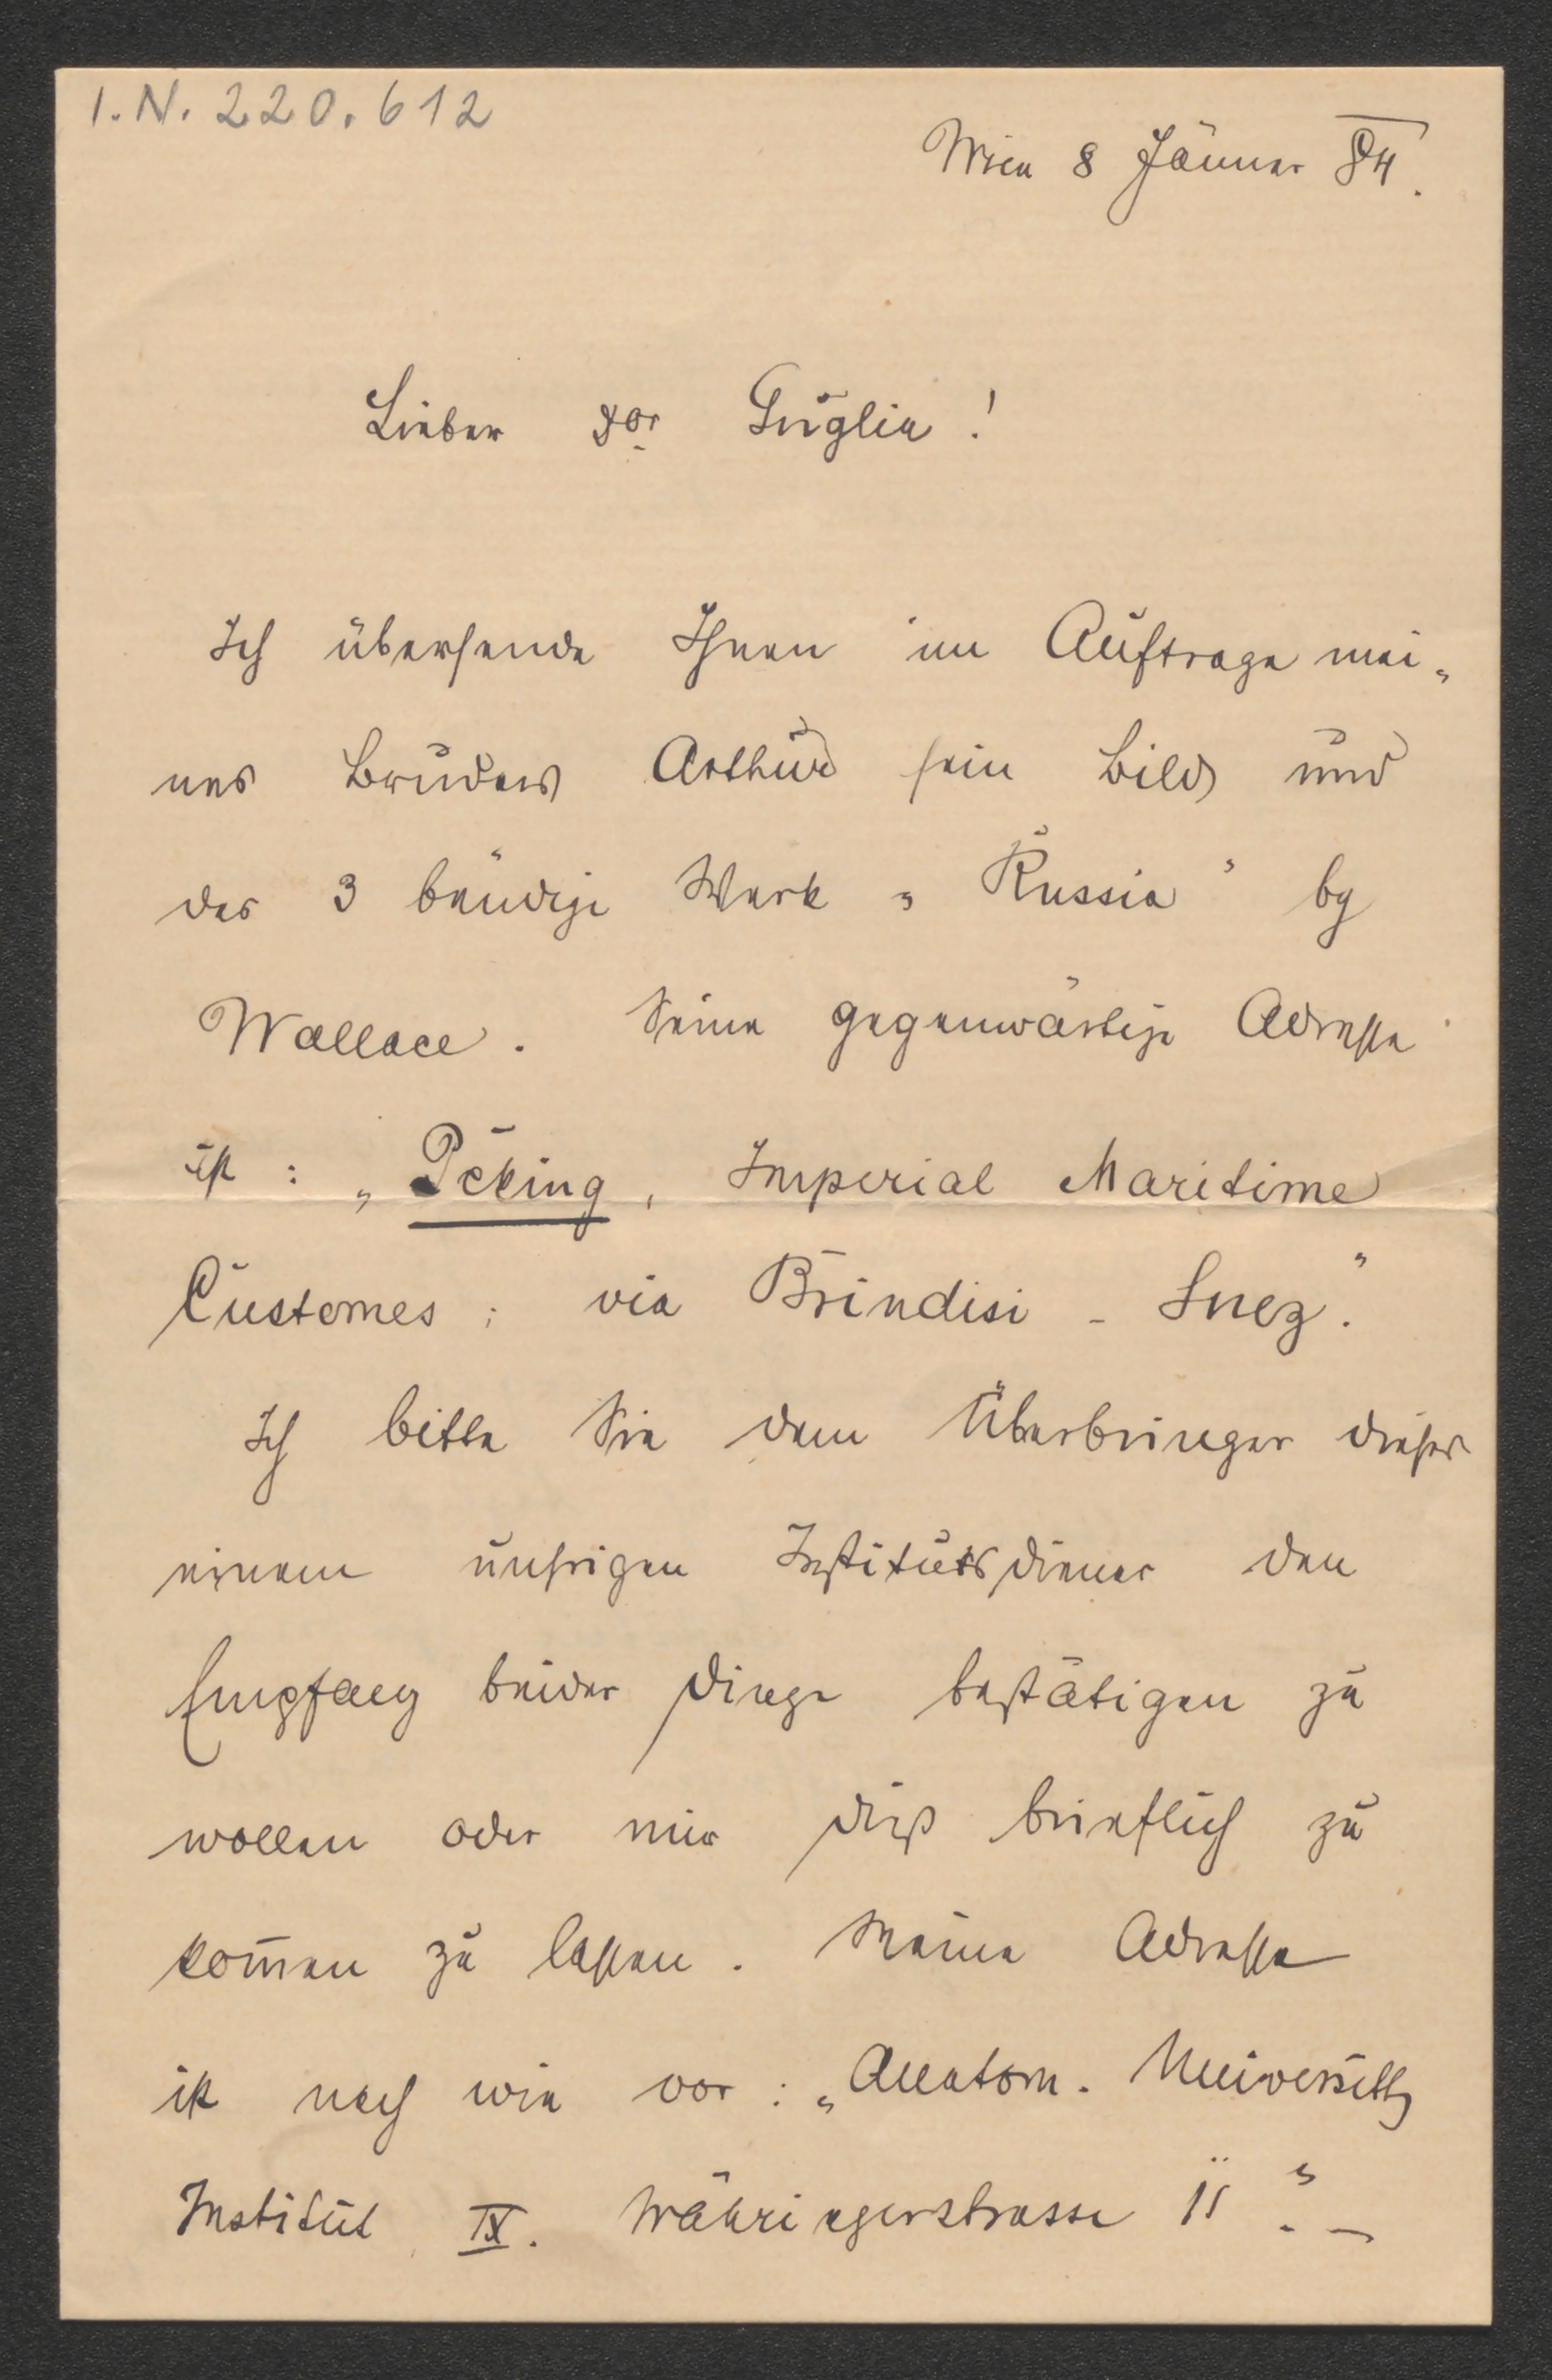 I.N. 220.612
Wien 8 Jänner 84.
Lieber Dor Guglia!
Ich übersende Ihnen im Auftrage mei„
nes Bruders Arthur sein Bild und
das 3 bändige Werk „Russia" by
Wallace. Seine gegenwärtige Adresse
ist: „Peking, Imperial Maritime
Customes; via Brindisi - Suez."
Ich bitte Sie dem Überbringer dieses
einem unsrigen Institutsdiener den
Empfang beider Dinge bestätigen zu
wollen oder mir dieß brieflich zu
kom̅en zu lassen. Meine Adresse
ist nach wie vor: „Anatom. Universität
Institut IX. Währingerstrasse 11." –